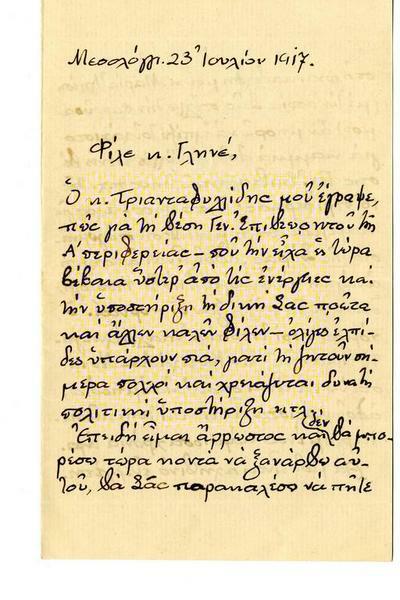 Μεσολόγγι. 23 Ἰουλίου 1917.
Φίλε κ. Γληνέ,
Ὁ κ. Τριανταφυλλίδης μοῦ ἔγραψε,
πὼς γιὰ τὴ θέση Γεν. Ἐπιθεωρητοῦ τῆς
Α΄ περιφερείας – ποὺ τὴν εἶχα ὣς τώρα
βέβαια ὕστερ' ἀπὸ τὶς ἐνέργειες καὶ
τὴν ὑποστήριξη τὴ δική Σας πρῶτα
καὶ ἄλλων καλῶν φίλων – ὀλίγες ἐλπί-
δες ὑπάρχουν πιά, γιατὶ τὴ ζητοῦν σή-
μερα πολλοὶ καὶ χρειάζεται δυνατὴ
πολιτικὴ ὑποστήριξη κτλ.
Ἐπειδὴ εἶμαι ἄρρωστος καὶ δὲν θὰ μπο-
ρέσω τώρα κοντὰ νὰ ξανάρθω αὐ-
τοῦ, θὰ Σᾶς παρακαλέσω νὰ πῆτε